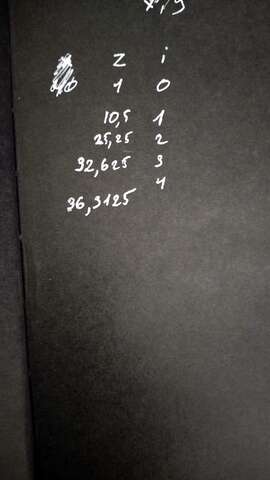 z i
1 0
10,5 1
25,25 2
32,625 3
4
36,3125